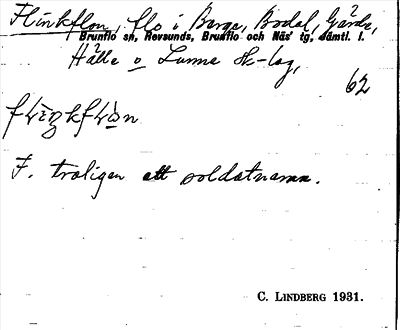 Flinkflon, flo i Berge, Bodal, Gärde,
Brunflo sn, Revsunds, Brunflo och Näs' tg, Jämtl. l.
Hälle o Lunne sk-lag,
62
F. troligen ett soldatnamn.
C. LINDBERG 1931.